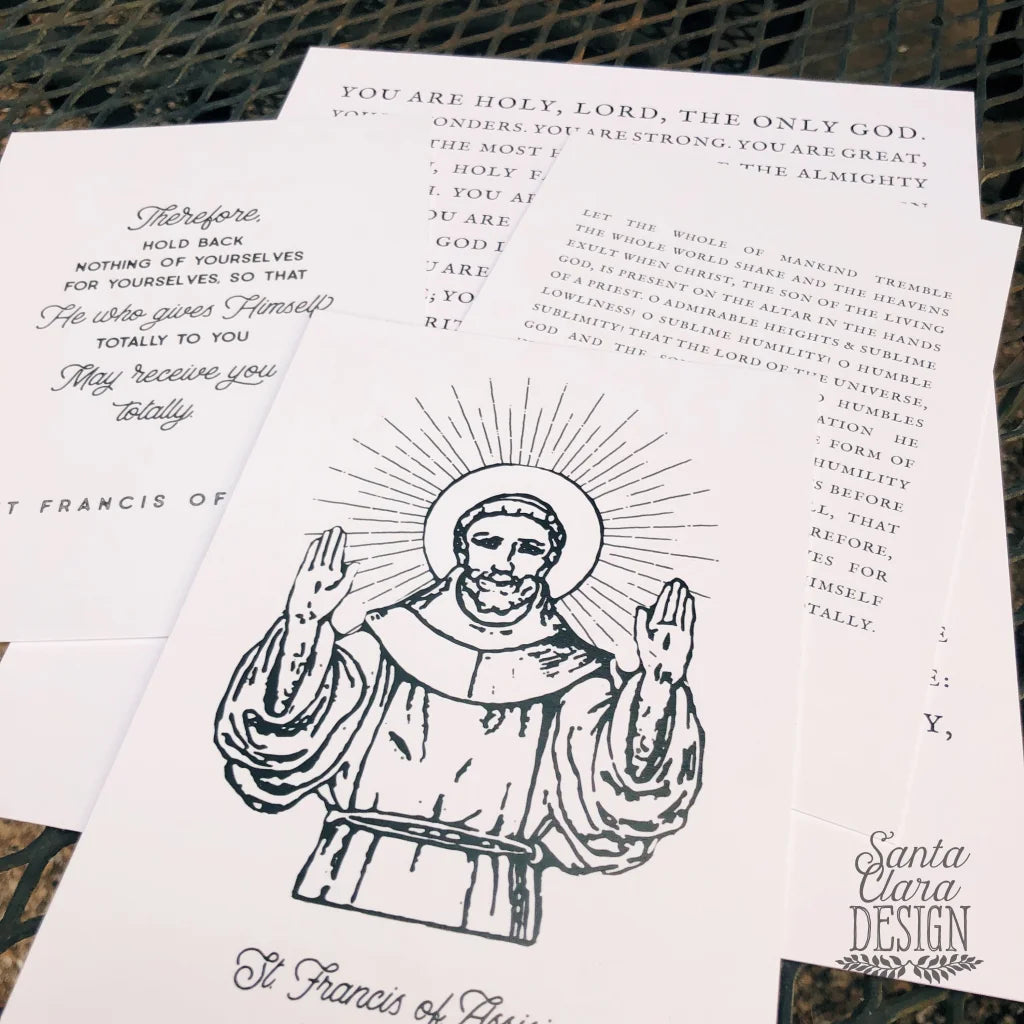 YOU ARE HOLY, LORD, THE ONLY GOD.
YOU ARE STRONG. YOU ARE GREAT,
THE MOST
THE ALMIGHTY
HOLY
YOU
ARE
GOD
ARE
Therefore,
HOLD BACK
NOTHING OF YOURSELVES
FOR YOURSELVES, SO THAT
He who gives Himself
TOTALLY TO YOU
May receive you
totally.
FRANCIS OF
LET THE WHOLE OF MANKIND TREMBLE
THE WHOLE WORLD SHAKE AND THE HEAVENS
EXULT WHEN CHRIST, THE SON OF THE LIVING
GOD, IS PRESENT ON THE ALTAR IN THE HANDS
OF A PRIEST. O ADMIRABLE HEIGHTS & SUBLIME
LOWLINESS! O SUBLIME HUMILITY! O HUMBLE
SUBLIMITY! THAT THE LORD OF THE UNIVERSE,
GOD AND THE
HUMBLES
HE
FORM OF
HUMILITY
BEFORE
THAT
FOR
HIMSELF
St. Francis of Assisi
Santa
Clara
DESIGN